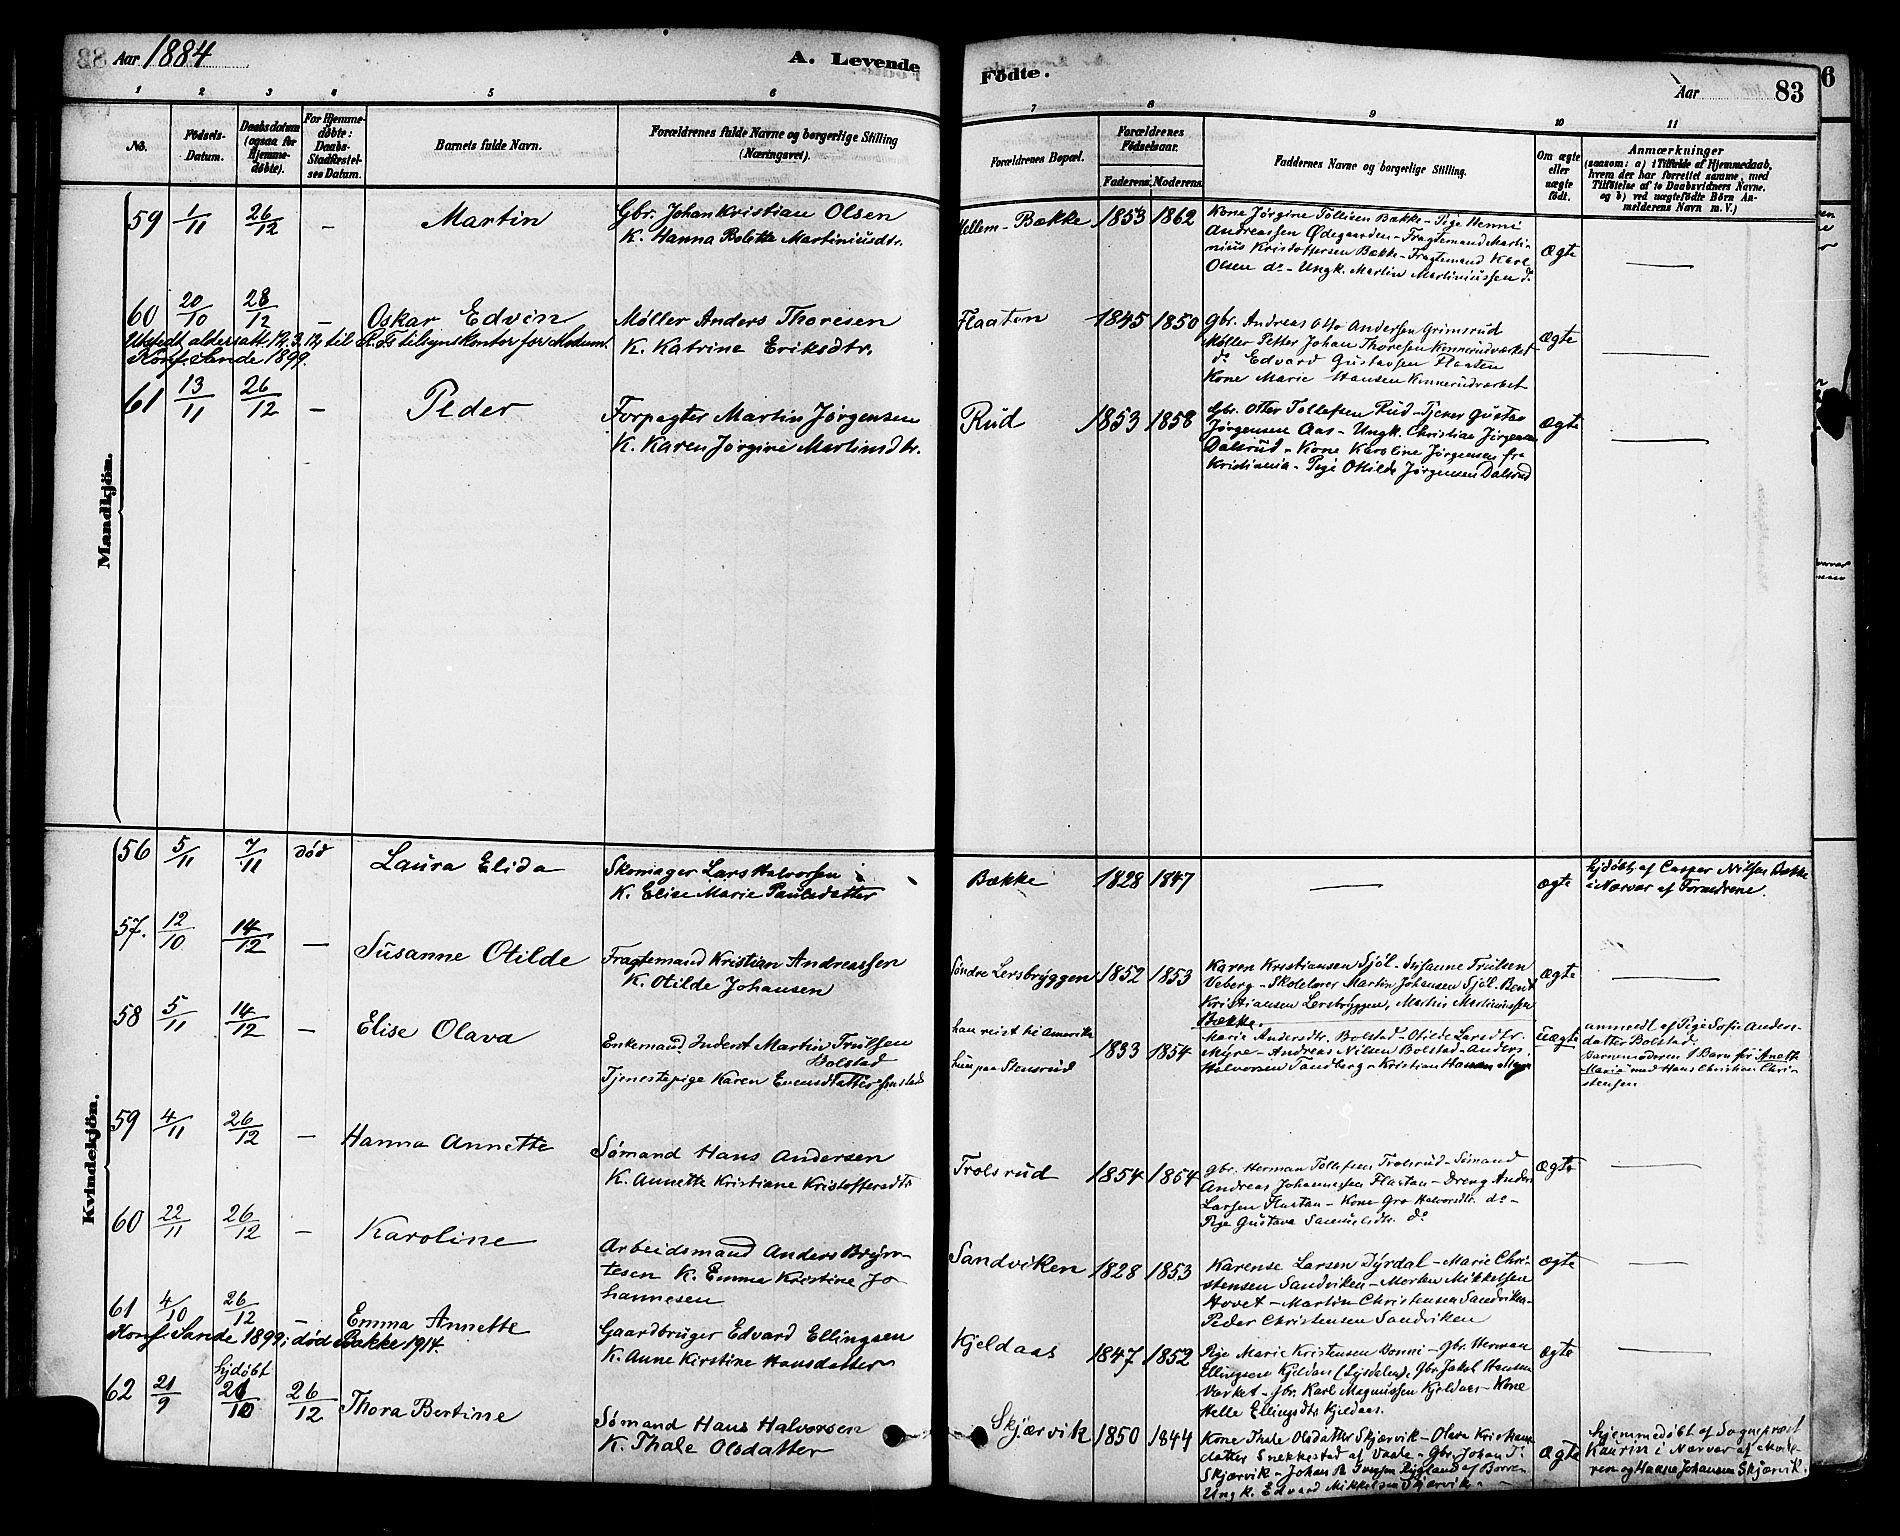 Aar 1884
A. Levende
Fødte.
Aar
83
1 2 3 4 5 6
7 8 9 10 11
No.
Fødsels-
Datum.
Daabsdatum
(ogsaa for
Hjemme-
døbte).
For Hjemme-
døbte:
Daabs-
Stadfæstel-
ses Datum.
Barnets fulde Navn.
Forældrenes fulde Navne og borgerlige Stilling
(Næringsvei).
Forældrenes Bopæl.
Forældrenes
Fødselsaar.
Faderens. Moderens.
Faddernes Navne og borgerlige Stilling.
Om ægte
eller
uægte
født.
Anmærkninger
(saasom: a) i Tilfælde af Hjemmedaab,
hvem der har forrettet samme, med
Tilføielse af to Daabsvidners Navne.
og b) ved uægtefødte Børn An-
melderens Navn m. V.)
Mandkjön.
59 1/11 26/12 – Martin
Gbr. Johan Kristian Olsen
K. Hanna Rolette Martiniusdtr.
Mellem-Bække 1853 1862
Kone Jørgine Tollisen Bække – Pige Henni
Andreassen Ødegaarden – Fragtemand Marti-
nius Kristoffersen Bække – Fragtemand Karl
Olsen do – Ungk. Martin Martiniussen do
Ægte
60 20/10 28/12 – Oskar Edvin
Møller Anders Thoresen
K. Katrine Eriksdtr.
Utstedt aldersatt. 12.3.12 til R.Fs tilsynskontor for Modum.
Konf. Sande 1899.
Flaaten 1845 1850
Gbr. Andreas Otto Andersen Grimsrud
Møller Petter Johan Thoresen Kinnerudværket
do Edvard Gustavsen Flaaten
Kone Marie Hansen Kinnerudværket
Ægte
61 13/11 26/12 – Peder
Forpagter Martin Jørgensen
K. Karen Jørgine Martinsdtr.
Rud 1853 1858
Gbr. Otter Tollefsen Rud – Tjener Gustav
Jørgensen Aas – Ungk. Christian Jørgensen
Dalsrud – Kone Karoline Jørgensen fra
Kristiania – Pige Otilde Jørgensen Dalsrud
Ægte
Kvindekjön.
56 5/11 7/11 død Laura Elida
Skomager Lars Halvorsen
K. Elise Marie Paulsdatter
Bække 1828 1847
ægte
hjdøbt af Casper Nilsen Bække
i Nærvær af Forældrene.
57. 12/10 14/12 – Susanne Otilde
Fragtemand Kristian Andreassen
K. Otilde Johansen
Søndre Lersbryggen 1852 1853
Karen Kristiansen Sjøl – Susanne Trulsen
Veberg – Skolelærer Martin Johansen Sjøl – Bent
Kristiansen Lersbryggen, Martin Martiniussen
Bække.
Ægte
58 5/11 14/12 – Elise Olava
Enkemand Inderst Martin Trulsen
Bolstad
Tjenestepige Karen Evensdatter
han reist til Amerika
hun paa Stensrud
1833 1854
Marie Andersdtr. Bolstad – Otilde Larsdtr.
Myre – Andreas Nilsen Bolstad – Anders
Halvorsen Sandberg – Kristian Hansen Myre
uægte
anmeldt af Pige Sofie Anders-
datter Bolstad.
Barnemoderen 1 Barn før Anette
Marie med Hans Christian Chri-
stensen
59 4/11 26/12 – Hanna Annette
Sømand Hans Andersen
K. Annette Kristiane Kristoffersdtr
Trolsrud 1854 1854
Gbr. Herman Tollefsen Trolsrud – Sømand
Andreas Johannessen Flaatan – Dreng Anders
Larsen Flaatan – Kone Gro Halvorsdtr. do –
Pige Gustava Samuelsdtr. do
Ægte
60 22/11 26/12 – Karoline
Arbeidsmand Anders Bryn-
tesen K. Emma Kristine Jo-
hannesen
Sandviken 1828 1853
Karense Larsen Dyrdal – Marie Chri-
stensen Sandviken – Morten Mikkelsen
Hovet – Martin Christensen Sandviken –
Peder Christensen Sandviken
ægte
61 4/10 26/12 – Emma Annette
Gaardbruger Edvard Ellingsen
K. Anne Kirstine Hansdatter
Konf. Sande 1899; død Bakke 1914.
Kjeldaas 1847 1852
Pige Marie Kristensen Bonni – Gbr. Herman
Ellingsen Kjeldaas – Gbr. Jakob Hansen
Varket – Gbr. Karl Magnussen Kjeldaas – Kone
Helle Ellingsdtr Kjeldaas.
ægte
62 21/9 hjdøbt 21/10 26/12 Thora Bertine
Sømand Hans Halvorsen
K. Thale Olsdatter
Skjærvik 1850 1844
Kone Thale Olsdatter Skjærvik – Olava Kristians-
datter Snekkestad af Vaale – Gbr. Johan
Skjærvik – Johan Rygland af Borre –
Ungk. Edvard Mikkelsen Skjærvik –
Ægte
Hjemmedøbt af Sogneprest
Kaurin i Nærvær af Mode-
ren og Hanna Johansen Skjærvik.